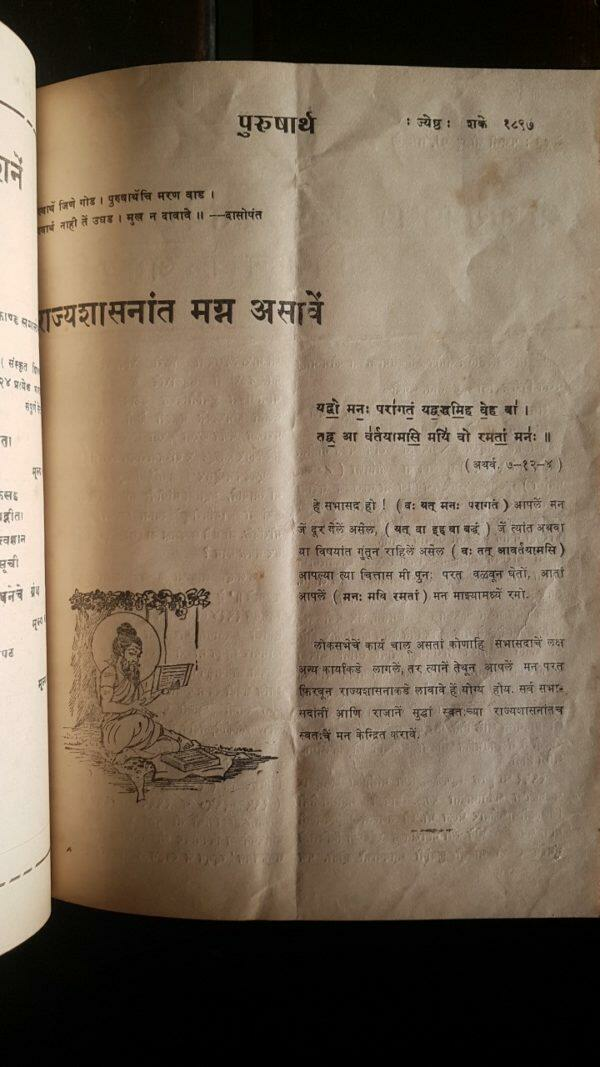 पुरुषार्थ
: ज्येष्ठ : शके १८९७
जिणे गोड । पुरुषार्थेंचि मरण वाड ।
नाही तें उघड । मुख न दावावे ॥ —दासोपंत
राज्यशासनांत मग्न असावें
यद्वो॒ मनः॒ परा॑गतं॒ यद्ब॒द्धमि॒ह वे॒ह वा॑ ।
तद्व॒ आ व॑र्तयामसि॒ मयि॑ वो रमतां॒ मनः॑ ॥
( अथर्व. ७-१२-४ )
हे सभासद हो ! ( वः यत् मनः परागतं ) आपलें मन
जें दूर गेलें असेल, ( यत् वा इह इह वा बद्धं ) जें त्यांत अथवा
या विषयांत गुंतून राहिलें असेल ( वः तत् आवर्तयामसि )
आपल्या त्या चित्तास मी पुनः परत वळवून घेतों, आतां
आपलें ( मनः मयि रमतां ) मन माझ्यामध्यें रमो.
लोकसभेचें कार्य चालू असतां कोणाहि सभासदाचें लक्ष
अन्य कार्याकडे लागलें, तर त्यानें तेथून आपलें मन परत
फिरवून राज्यशासनाकडे लावावे हें योग्य होय. सर्व सभा-
सदांनीं आणि राजानें सुद्धां स्वतःच्या राज्यशासनांतच
स्वतःचें मन केन्द्रित करावें.